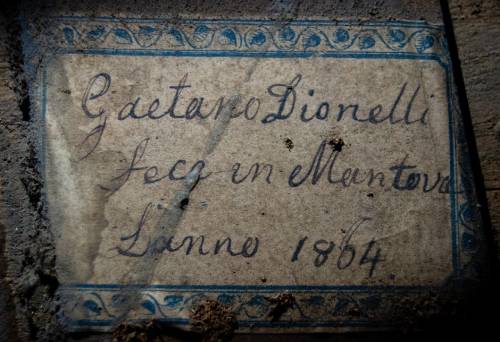 Gaetano Dionelli
fece in Mantova
L'anno 1864